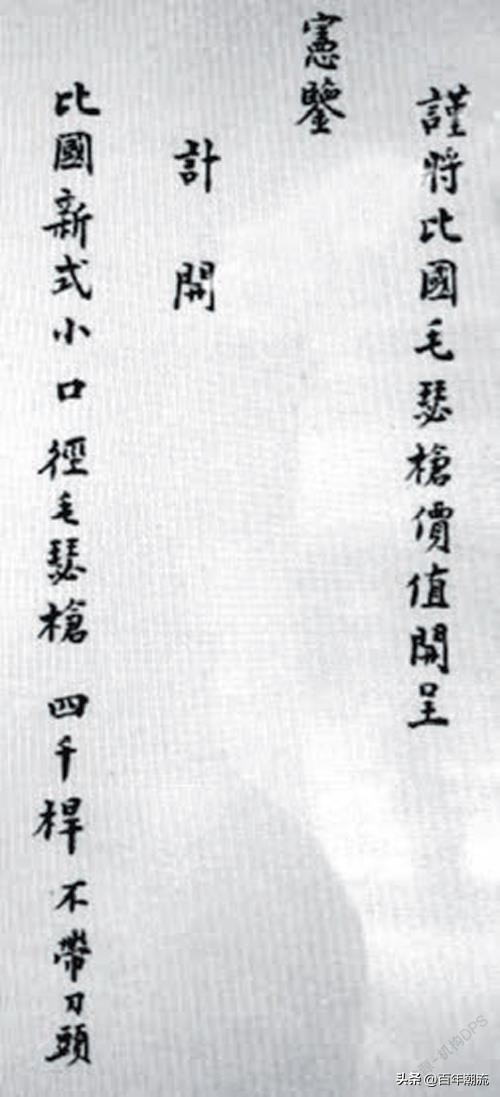 謹將比國毛瑟槍價值開呈
憲鑒
計開
比國新式小口徑毛瑟槍 四千桿 不帶刀頭
頭条 @百年潮流